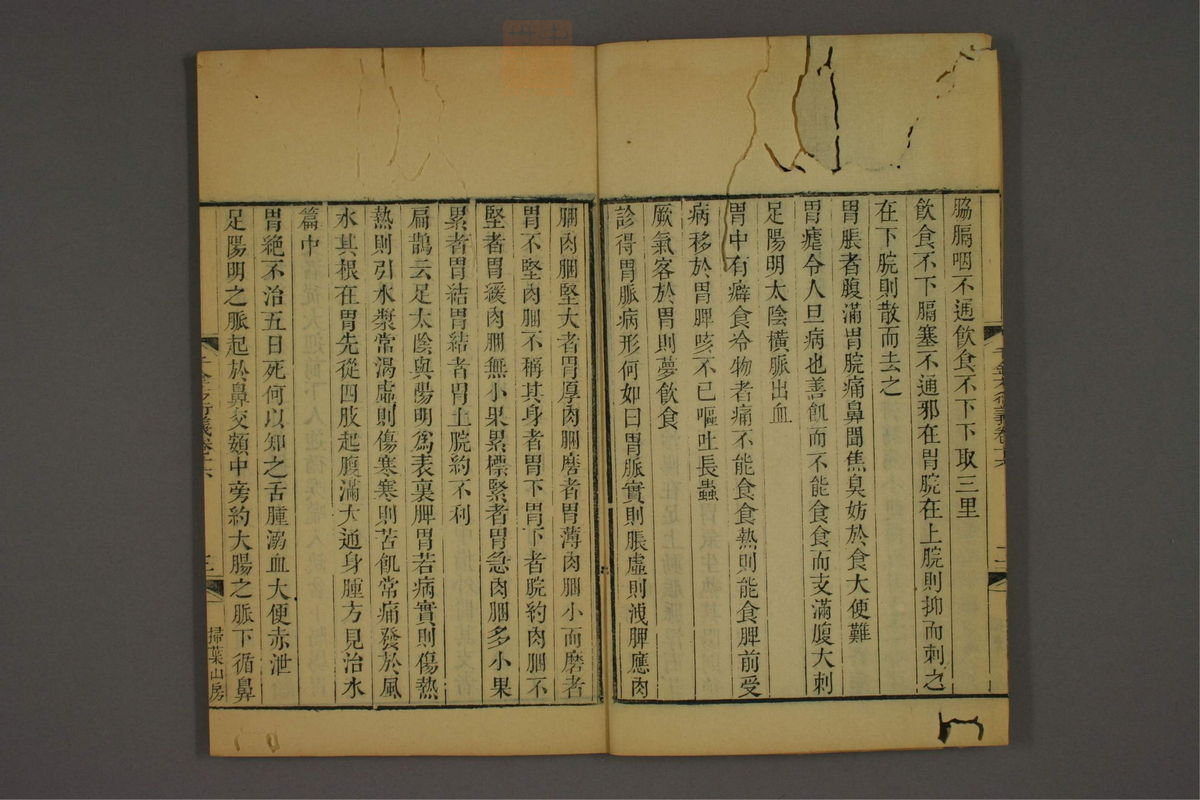 脇膈咽不通飲食不下下取三里
飲食不下膈塞不通邪在胃脘在上脘則抑而刺之
在下脘則散而去之
胃脹者腹滿胃脘痛鼻聞焦臭妨於食大便難
胃瘧令人旦病也善飢而不能食食而支滿腹大刺
足陽明太陰橫脈出血
胃中有癖食冷物者痛不能食食熱則能食脾前受
病移於胃脾咳不已嘔吐長蟲
厥氣客於胃則夢飲食
診得胃脈病形何如曰胃脈實則脹虛則洩脾應肉
膕肉膕堅大者胃厚肉膕麽者胃薄肉膕小而麽者
胃不堅肉膕不稱其身者胃下胃下者脘約肉膕不
堅者胃緩肉膕無小果累標緊者胃急肉膕多小果
累者胃結胃結者胃上脘約不利
扁鵲云足太陰與陽明為表裏脾胃若病實則傷熱
熱則引水漿常渴虛則傷寒寒則苦飢常痛發於風
水其根在胃先從四肢起腹滿大通身腫方見治水
篇中
胃絕不治五日死何以知之舌腫溺血大便赤泄
足陽明之脈起於鼻交頞中旁約大腸之脈下循鼻
千金方衍義卷十六
二
千金方衍義卷十六
三
掃葉山房